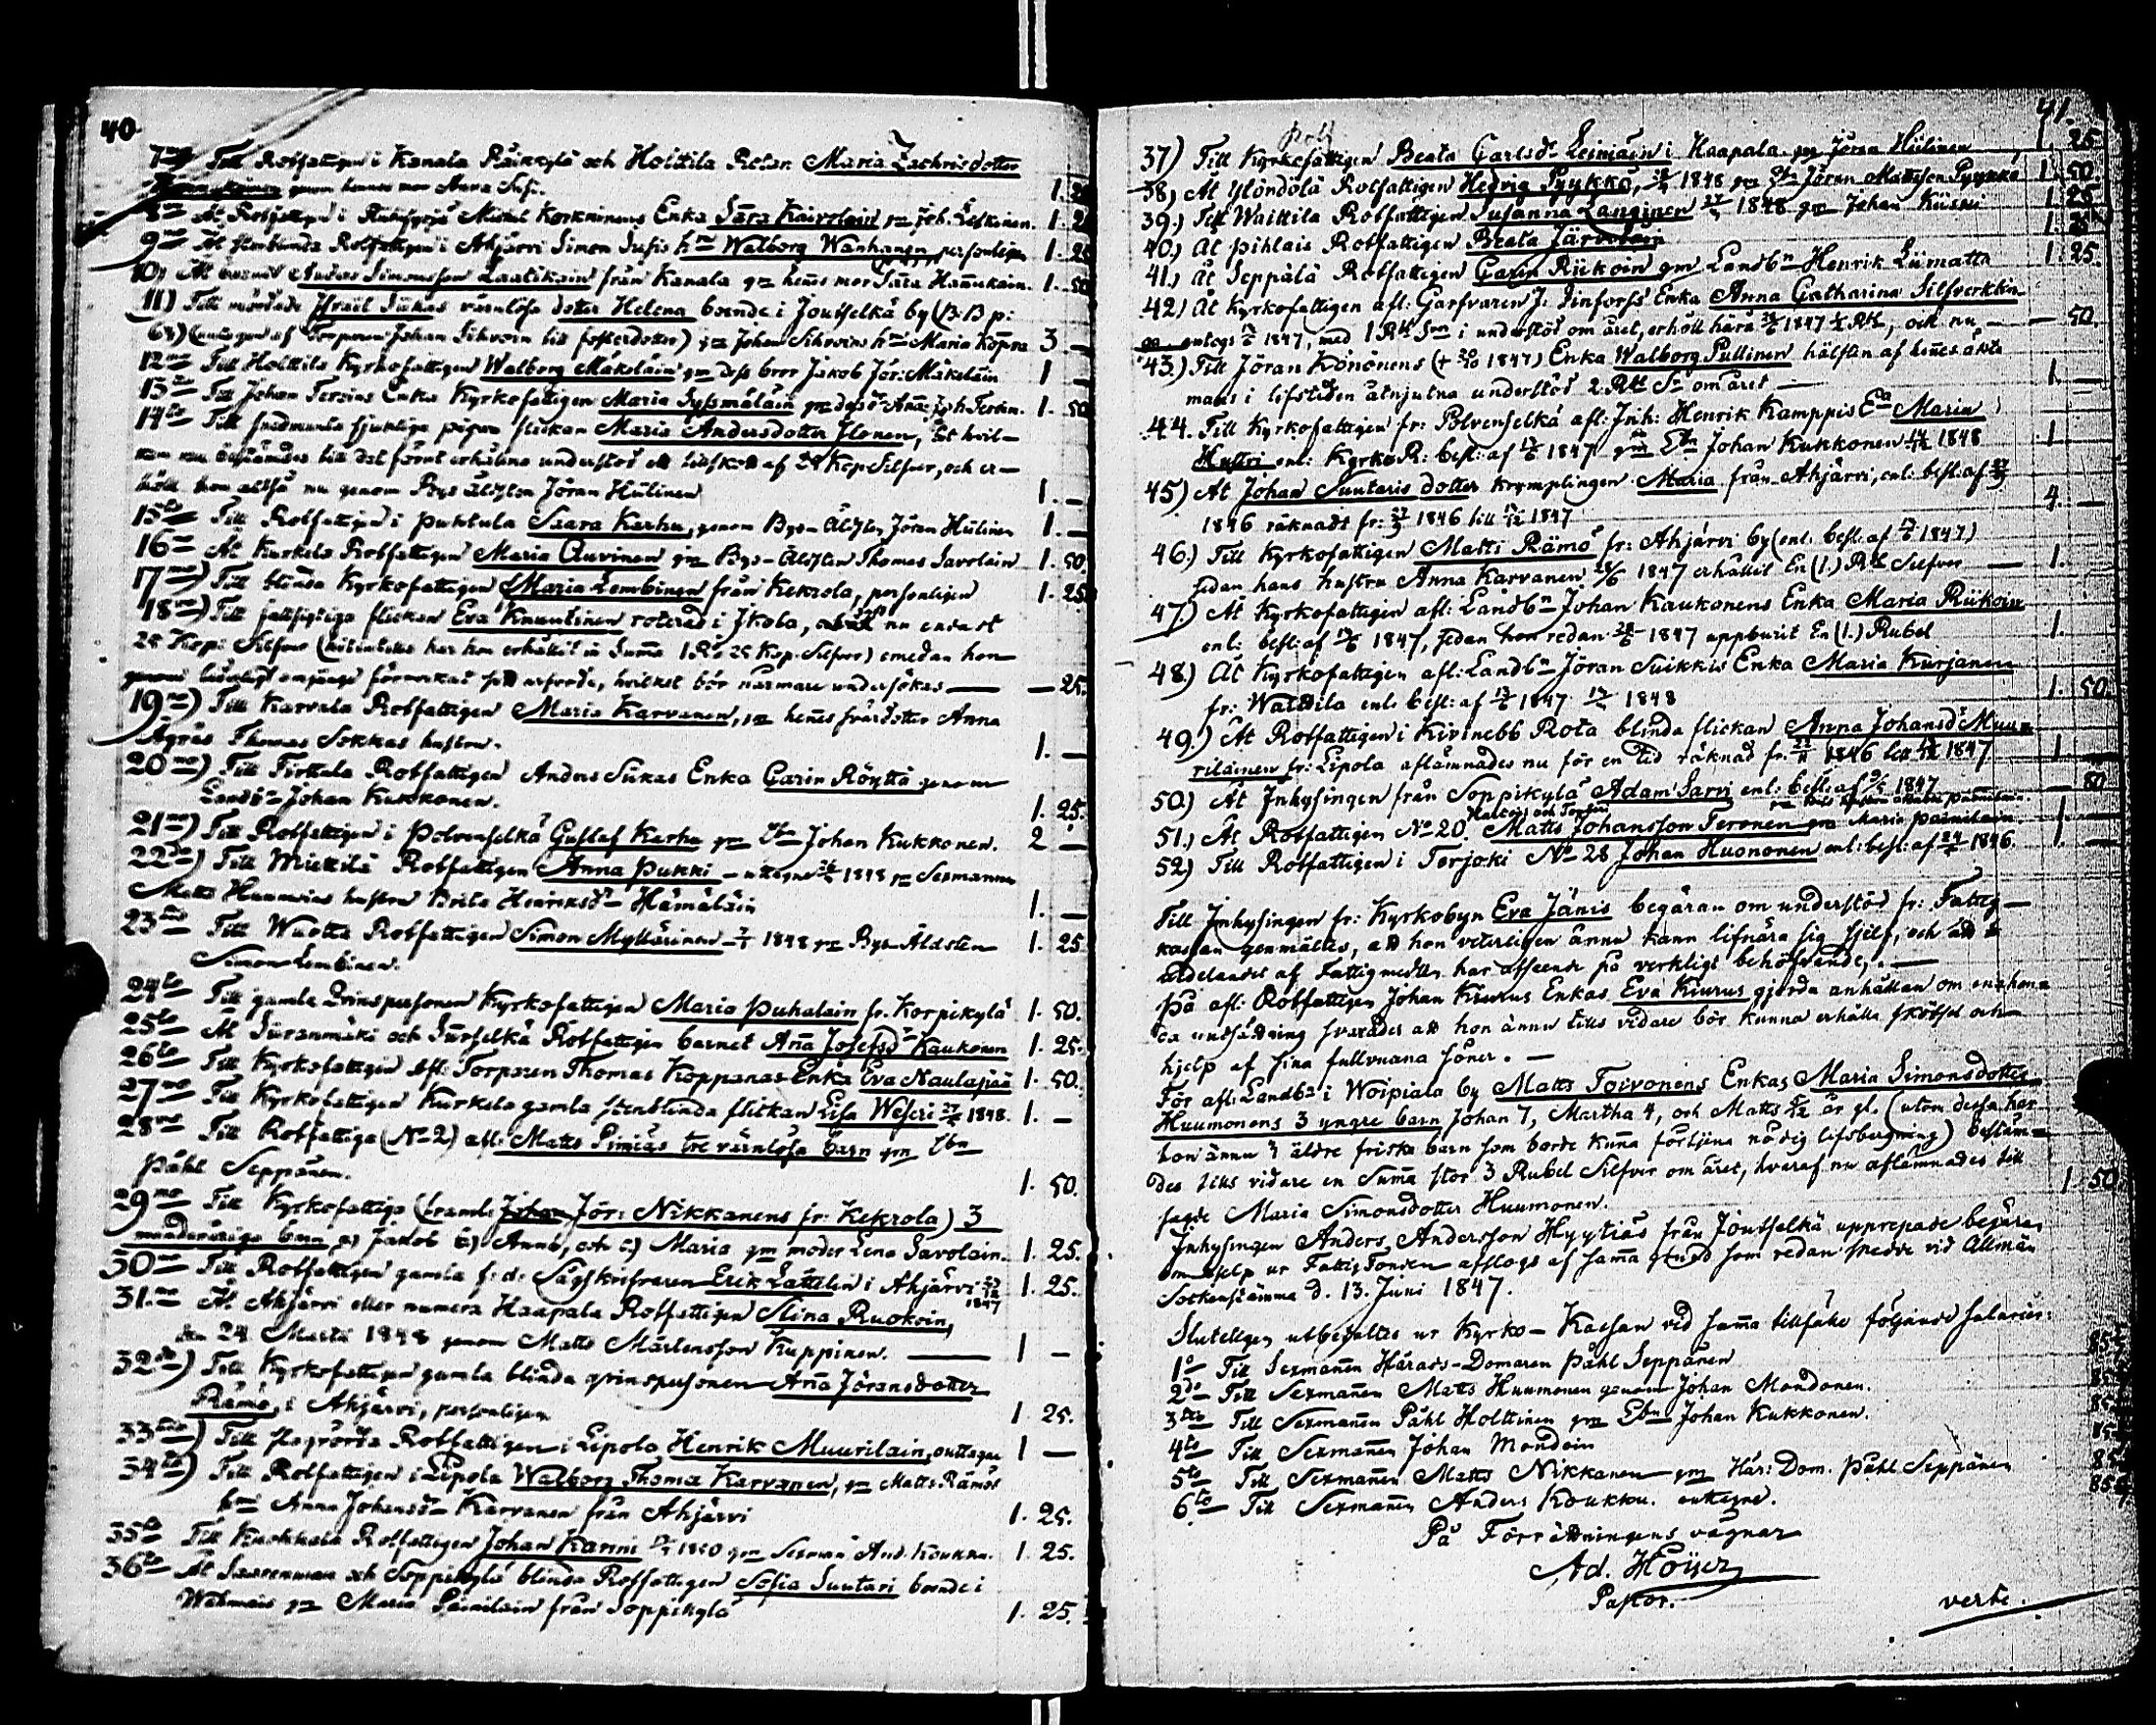 40
7mo Till Rotfattigen i Kanala Räikkylä och Holttila Rotar Maria Zachrisdotter
genom hennes mor Anna Susi. 1. 25
8vo At Rotfattigen i Michel Korkninens Enka Sara Kaivolain gm Joh. Leskinen. 1. 25
9no At stenblinda Rotfattigen i Ahjärvi Simon Susis hu Walborg Wanhanen personligen 1. 25
10) At Anders Simonsson Laatikain från Kanala gm hennes mor Sara Hannukain. 1. 50
11) Till mördade Israël Sukas värnlösa dotter Helena boende i Joutselkä by (B:B p:
68) (antagen af Torparen Johan Sihvoin till fosterdotter) gm Johan Sihvoins hu Maria Koppra 3. —
12mo Till Holttila Kyrkofattigen Walborg Mäkeläin gm dess bror Jakob Jör: Mäkeläin 1 —
13 Till Johan Tersins Enka Kyrkofattigen Maria Sysmäläin gm dess dr Anna Joh. Tersin. 1. 50
14to Till sjuklige pigan flickan Maria Andersdotter Ilonen, åt hvil-
ken nu bestämdes till det förut erhållna understöd ett tillskott af 25 Kop. Silfver, och er-
höll hon alltså nu genom Bys äldsten Jöran Hülinen 1. —
15to Till Rotfattigen i Puhtula Saara Karhu, genom Bys-Äldsten Jöran Hülinen 1. —
16to At Kurkela Rotfattigen Maria Auvinen gm Bys-Äldsten Thomas Savolain 1. 50
17mo) Till blinda Kyrkofattigen Maria Lembinen från Kekrola, personligen 1. 25
18vo) Till fallsjuka flickan Eva Knuutinen roterad i Ikola, nu endast
25 Kop: Silfver (hitintills har hon erhållit in Summa 1 Ro 25 Kop. Silfver) emedan hon
genom lidligt omgänge förvärkat sitt, hvilket bör närmare undersökas — — 25.
19no) Till Karvala Rotfattigen Maria Karvanen, gm hennes frändotter Anna
Ägräs Thomas Sokkas hustru. 1. —
20mo) Till Tirttula Rotfattigen Anders Sukas Enka Carin Röyttä genom
Landbn Johan Kukkonen. 1. 25.
21mo) Till Rotfattigen i Polvenselkä Gustaf Karhu gm Ebn Johan Kukkonen. 2 —
22do) Till Miettilä Rotfattigen Anna Pukki — 1848 gm Sexmannen
Matts Huumoins hustru Brita Henriksdr Hämäläin 1. —
23tio Till Wuotta Rotfattigen Simon Myllärinen 1848 gm Bys-Äldsten 1. 25
Simon Lembinen.
24to Till gamla Krinspersonen Kyrkofattigen Maria Puhalain fr. Korpikylä 1. 50.
25to At Suranmäki och Surselkä Rotfattigen barnet Anna Josefsdr Kaukonen 1. 25.
26to Till Kyrkofattigen Afl: Torparen Thomas Koppanas Enka Eva Naulapää 1. 50.
27mo Till Kyrkofattigen Kurkela gamla stenblinda flickan Lisa Weseri 1848. 1. —
28vo Till Rotfattiga (No 2) afl: Matts Pimiäs tre värnlösa barn gm Ebn
Påhl Seppänen. 1. 50.
29no Till Kyrkofattiga (framl: Johan Jör: Nikkanens fr: Kekrola) 3
minderåriga barn a) Jakob b) Anna, och c) Maria gm moder Lena Savolain. 1. 25.
30mo Till Rotfattigen gamla f: d: Sågskrifvaren Erik Lättilin i Ahjärvi 1847 1. 25.
31.mo At Ahjärvi eller numera Haapala Rotfattigen Stina Ruokoin,
den 24 Martii 1848 genom Matts Mårtensson Kuppinen. — 1 —
32do) Till Kyrkofattigen gamla blinda qvinspersonen Anna Jöransdotter
Rämö, i Ahjärvi, personligen 1 25.
33tio) Till slagrörda Rotfattigen i Lipola Henrik Muurilain, 1 —
34to) Till Rotfattigen i Lipola Walborg Thoma Karvanen, gm Matts Rämös
hu Anna Johansdr Karvanen från Ahjärvi 1. 25.
35to Till Kuokkala Rotfattigen Johan Karmi gm Sexman And. Koukku. 1. 25.
36to At Saarenmaa och Soppikylä blinda Rotfattigen Sofia Suutari boende i
Wammais gm Maria Painilain från Soppikylä 1. 25.
41.
37) Till Kyrkofattigen Beata Carlsdr Leiniäin i Haapala gm Jöran Hülinen 1. 25
38) At Ylöndölä Rotfattigen Hedvig Pyykkö, 1848 gm Jöran Mattsson Pyykkö 1. 50.
39.) Till Waittila Rotfattigen Susanna Langinen 1848 gm Johan Küsski 1. 25
40.) At Pihlais Rotfattigen Beata Järvelain 1.
41.) At Seppälä Rotfattigen Carin Riikoin gm Landbn Henrik Liimatta 1. 25.
42) At Kyrkofattigen afl: Garfvaren J. Sinforss Enka Anna Catharina Silfverkin-
1847, med 1 Rub Srn i understöd om året, erhöll härå 1847 ½ Rub, och nu — — 50.
43.) Till Jöran Könönens (+ 20/10 1847) Enka Walborg Pullinen hälften af hennes äkta
mans i lifstiden åtnjutna understöd 2 Rub Sr om året — 1. —
44. Till Kyrkofattigen fr: Polvenselkä afl: Inh: Henrik Kamppis Ea Maria
Hyttri enl: Kyrko R: besl: af 1847 gm Ebn Johan Kukkonen 1848 1
45) At Johan Suutaris dotter krymplingen Maria från Ahjärvi, enl: besl: af
1846 räknadt fr: 1846 till 1847 4. —
46.) Till Kyrkofattigen Matts Rämö fr: Ahjärvi by (enl: besl: af 1847)
sedan hans hustru Anna Karvanen 1847 erhållit En (1.) Rub Silfver — 1.
47.) At Kyrkofattigen afl: Landbn Johan Kaukonens Enka Maria Riikoin
enl: besl: af 1847, sedan hon redan 1847 uppburit En (1.) Rubel 1.
48.) At Kyrkofattigen afl: Landbn Jöran Suikkis Enka Maria Kurjanen
fr: Waittila enl: besl: af 1847 1848 1. 50.
49.) At Rotfattigen i Kivinebb Rota blinda flickan Anna Johansdr Muu-
riläinen fr: Lipola aflämnades nu för en tid räknad fr: 1846 till 1847 1. —
50.) At Inhysingen från Soppikylä Adam Sarvi enl: besl: af 1847 — 50
51.) At Rotfattigen No 20. Matts Johansson Teronen gm Maria Painilain. 1. —
52.) Till Rotfattigen i Terjoki No 28 Johan Huononen enl: besl: af 1846. 1. —
Till Inhysingen fr: Kyrkobyn Eva Jänis begäran om understöd fr: Fattig-
kassan genmältes, att hon veterligen ännu kann lifnära sig sjelf, och att
utdelandet af Fattigmedlen har afseende på verkligt behöfvande. —
På afl: Rotfattigen Johan Kiurus Enkas Eva Kiurus gjorda anhållan om
svarades att hon ännu tills vidare bör kunna erhålla skötsel och
hjelp af sina fullvuxna söner. —
För afl: Landbn i Woipiala by Matts Toivonens Enkas Maria Simonsdotter
Huumonens 3 yngre barn Johan 7, Martha 4, och Matts år gl. (utom dessa har
hon ännu 3 äldre friska barn som borde kunna förtjena nödig lifsbergning) bestäm-
des tills vidare en Summa stor 3 Rubel Silfver om året, hvaraf nu aflämnades till
sagde Maria Simonsdotter Huumonen. 1. 50
Inhysingen Anders Andersson Hyytiäs från Joutselkä upprepade begäran
om hjelp ur Fattig Fonden afslogs af samma grund som redan skedde vid Allmän
Sockenstämma d. 13. Juni 1847.
Slutligen utbetaltes ur Kyrko-Kassan vid samma tillfälle följande Salarier:
1o Till Sexmannen Härads-Domaren Påhl Seppänen 85
2do Till Sexmannen Matts Huumonen genom Johan Mondonen. 85
3tio Till Sexmannen Påhl Holttinen gm Ebn Johan Kukkonen. 85
4to Till Sexmannen Johan Mondoin 85
5to Till Sexmannen Matts Nikkanen gm Här: Dom. Påhl Seppänen 85
6to Till Sexmannen Anders Koukku. 85
På Förrättningens vägnar
Ad. Höijer
Pastor.
verte.